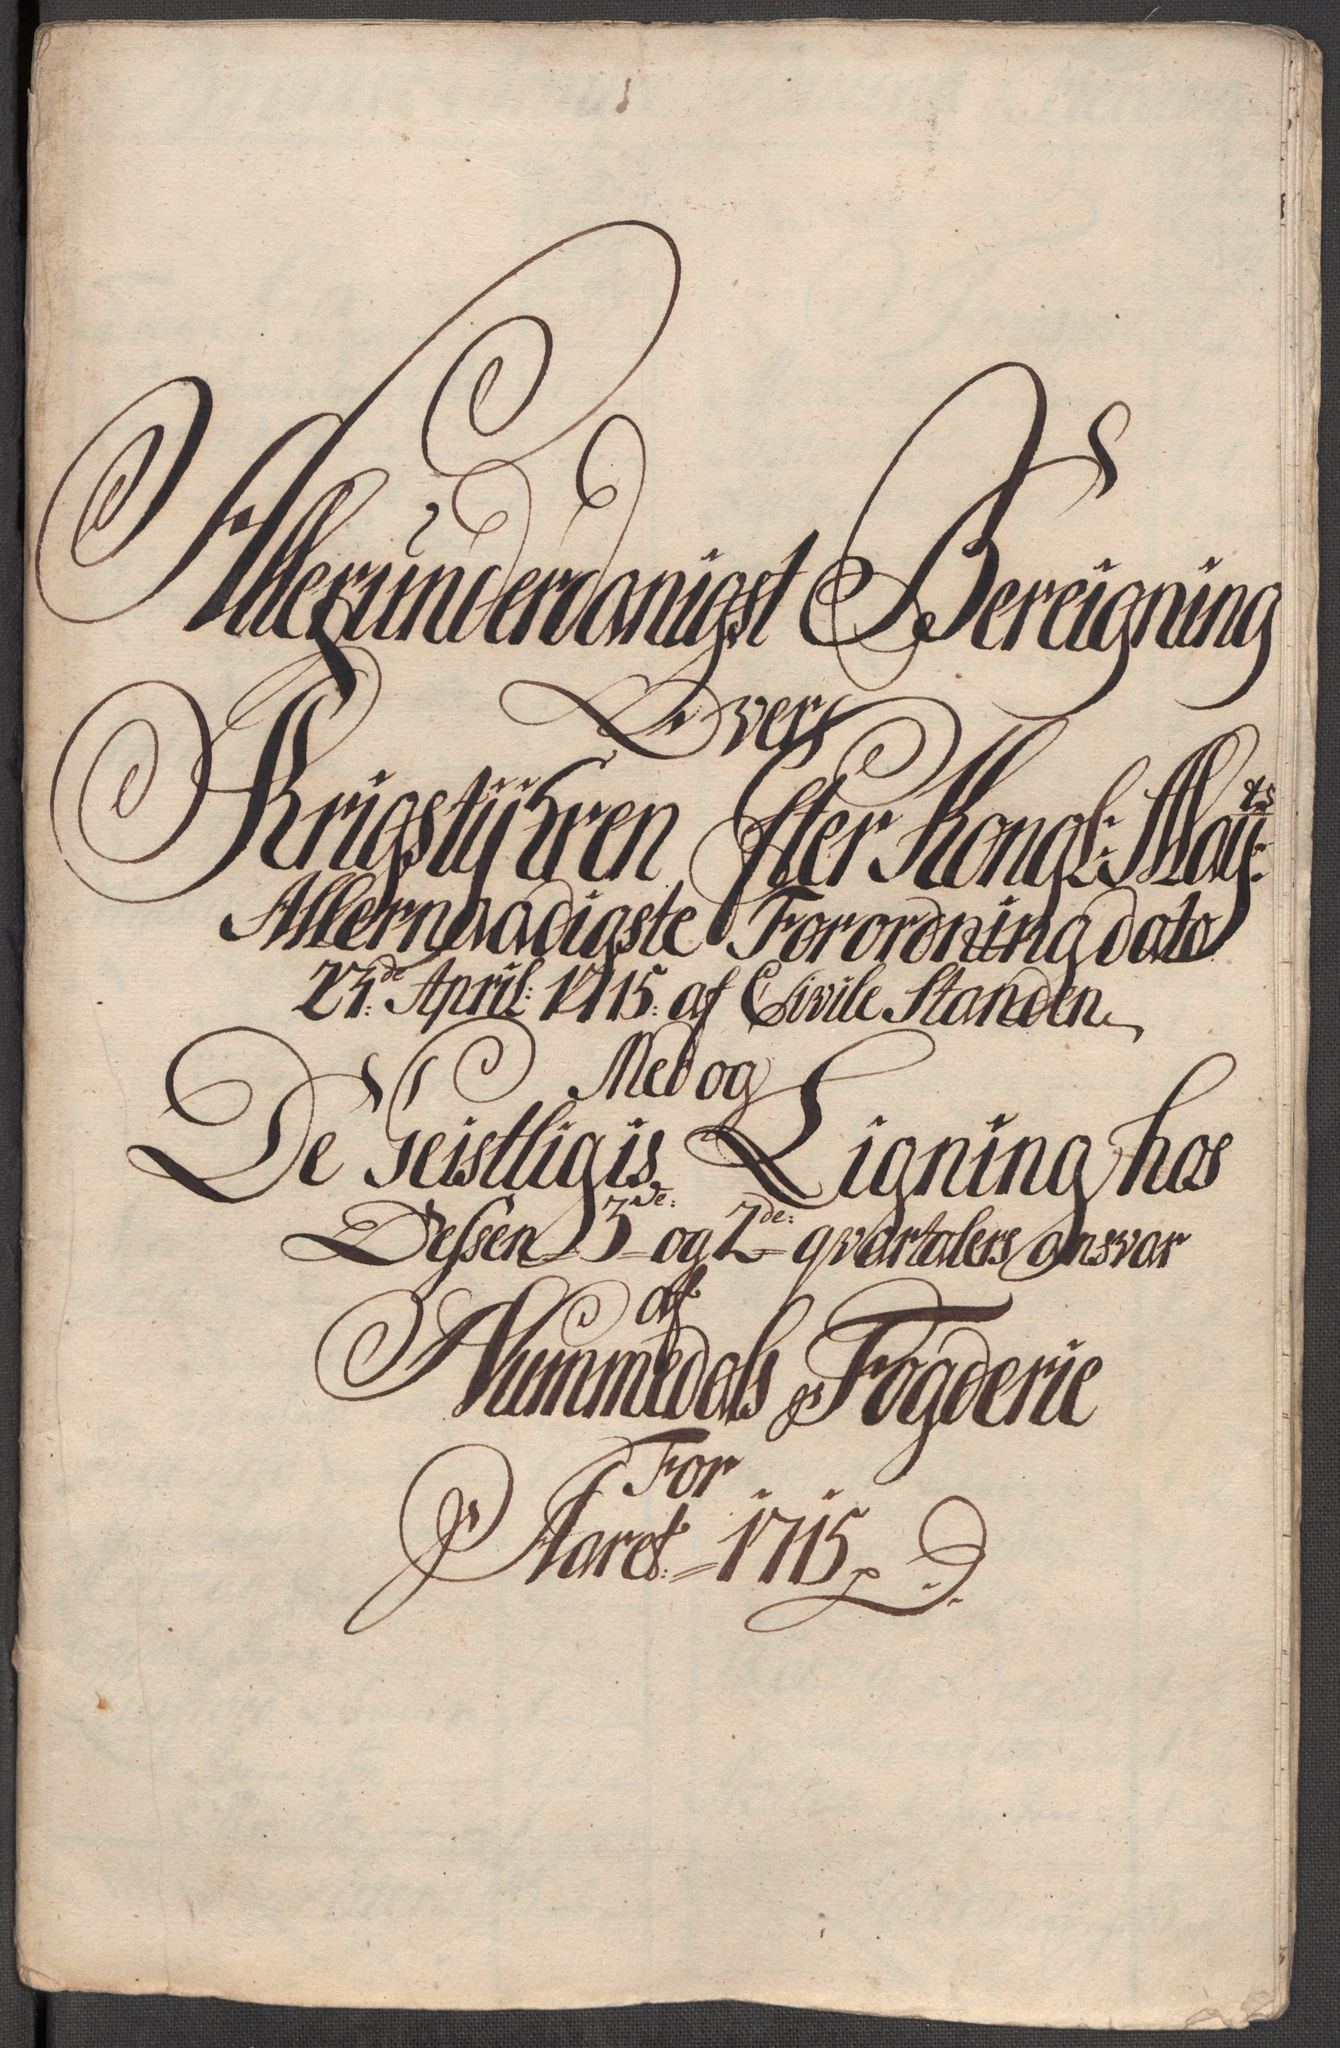 Allerunderdanigst Bereigning
Over
Krigstÿhren Efter Kongl: Maÿ:ts
Allernaadigste Forordning dato
23:de April: 1715: af Civile Standen
Med og
De Geistligis Ligning hos
Dessen 3de: og 2de: qvartalers ansvar
af
Nummedals Fogderie
For
Aaret: 1715